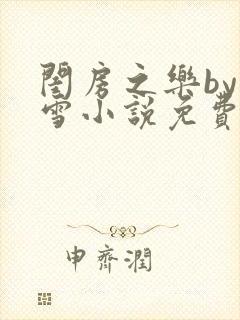 閨房之樂by
雪小說免費
申齊潤